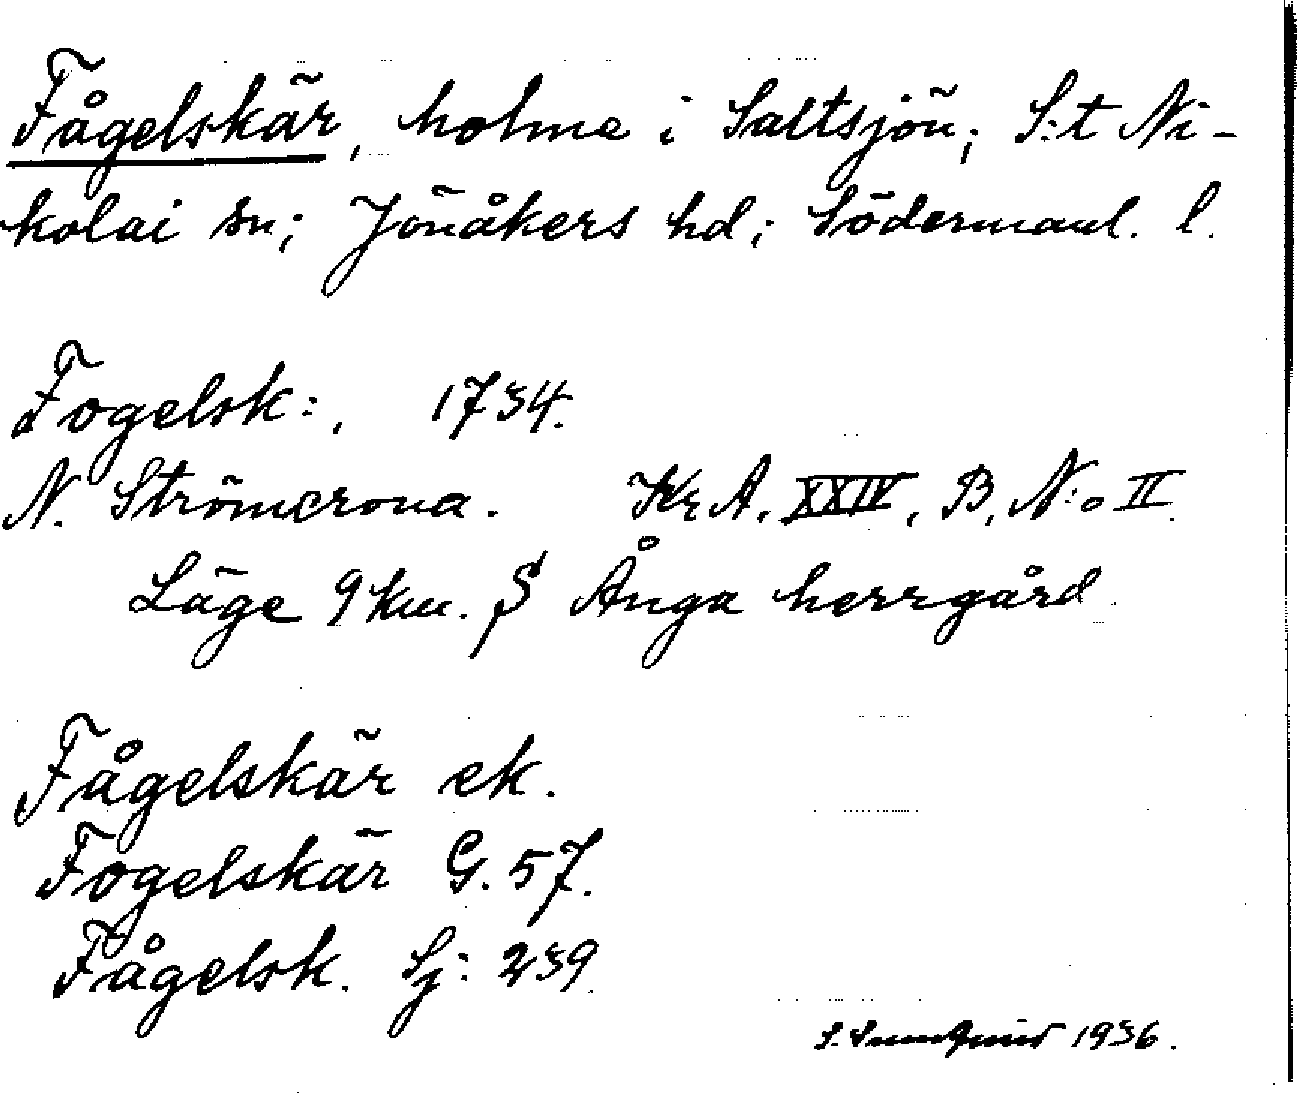 Fågelskär, holme i Saltsjön; S:t Ni-
kolai sn; Jönåkers hd; Södermanl. l.
Fogelsk:, 1734.
N. Strömcrona. Kr A. XXIV, B, N:o II.
Läge 9 km. S Ånga herrgård
Fågelskär ek.
Fogelskär G. 57.
Fågelsk. Sj: 239.
S. 1936.